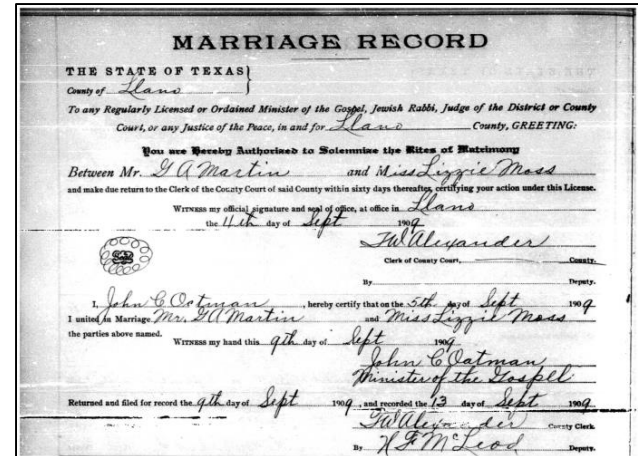 MARRIAGE RECORD
THE STATE OF TEXAS}
County of Llano
To any Regularly Licensed or Ordained Minister of the Gospel, Jewish Rabbi, Judge of the District or County
Court, or any Justice of the Peace, in and for Llano County, GREETING:
You are Hereby Authorized to Solemnize the Rites of Matrimony
Between Mr. G A Martin and Miss Lizzie Moss
and make due return to the Clerk of the County Court of said County within sixty days thereafter, certifying your action under this License.
WITNESS my official signature and seal of office, at office in Llano
the 4th day of Sept 1909
Alexander
Clerk of County Court, County.
By Deputy.
I, John C Oatman, hereby certify that on the 5th day of Sept 1909
I united in Marriage Mr. G A Martin and Miss Lizzie Moss
the parties above named.
WITNESS my hand this 9th day of Sept 1909
John C Oatman
Minister of the Gospell
Returned and filed for record the 9th day of Sept 1909, and recorded the 13 day of Sept 1909
Alexander County Clerk.
By McLeod Deputy.